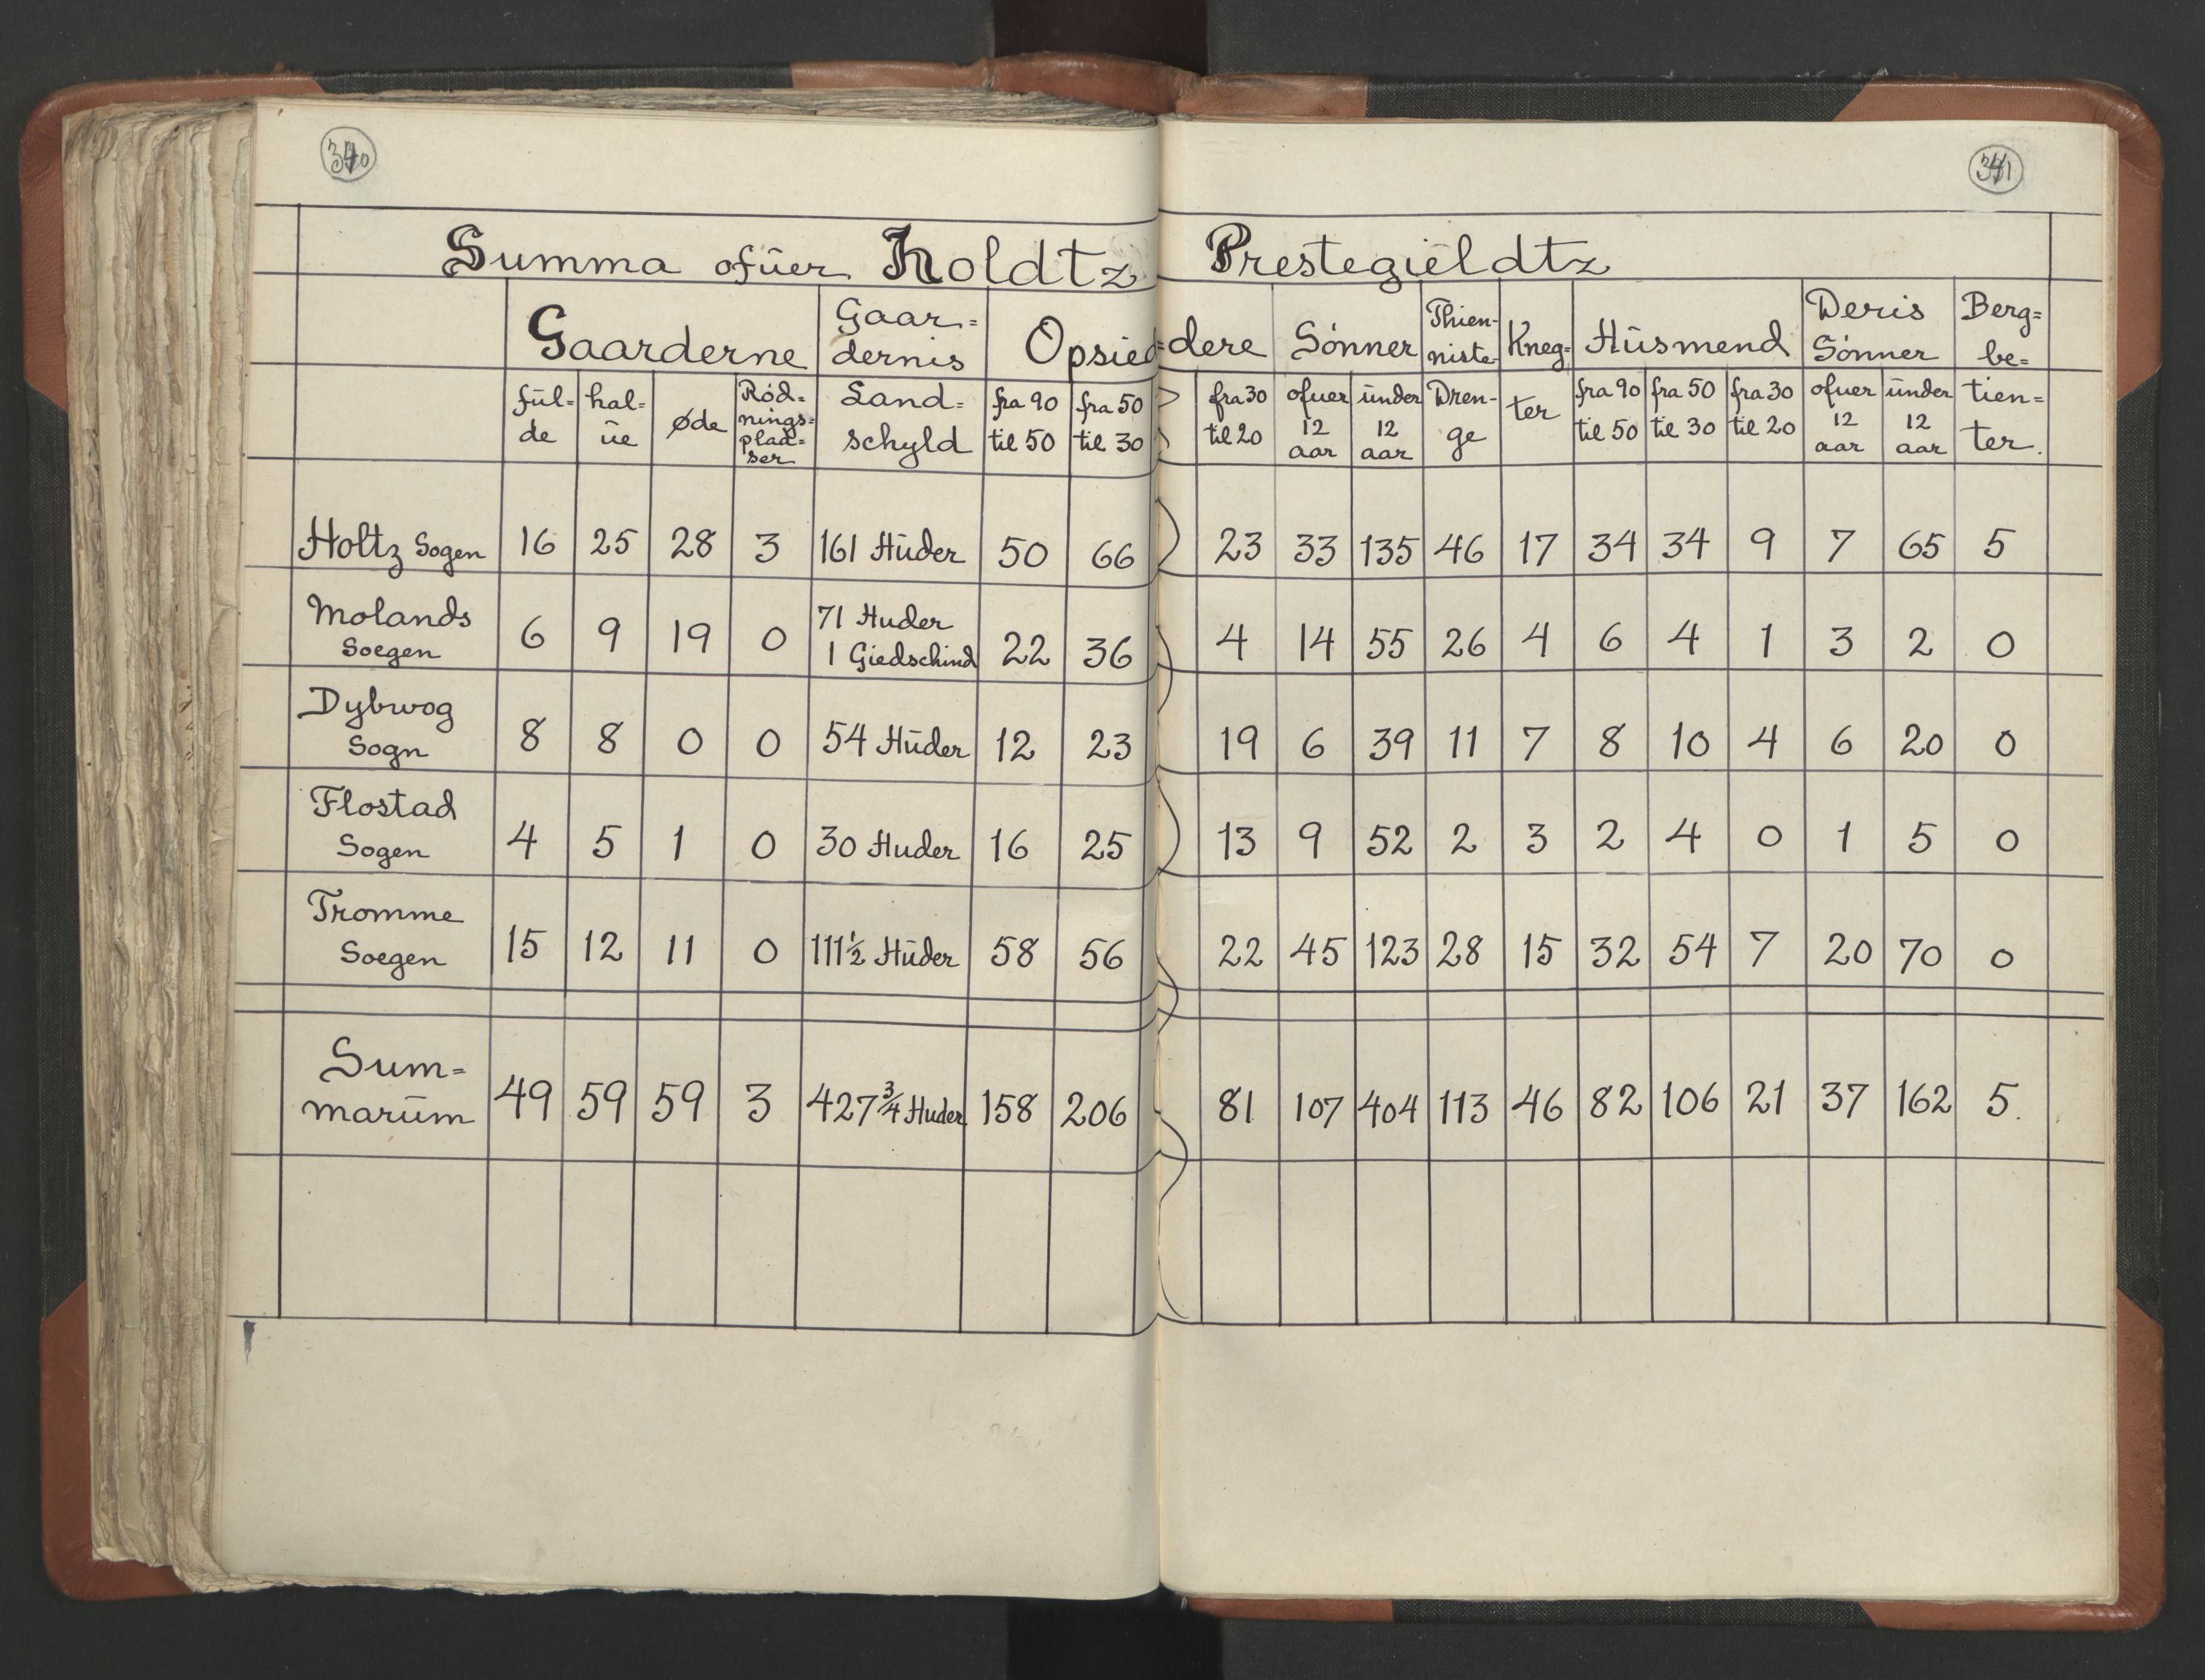 340
341
Summa ofüer Holdtz Prestegieldtz
Gaarderne Gaar= dernis Opsied=dere Sønner Thien- niste- Kneg= Hüsmend Deris Sønner Berg= be=
fül= de hal= üe øde Rød= nings= plad= ser Land= schyld fra 90 til 50 fra 50 til 30 fra 30 til 20 ofuer 12 aar ünder 12 aar Dren- ge ter fra 90 til 50 fra 50 til 30 fra 30 til 20 ofuer 12 aar ünder 12 aar tien= ter.
Holtz Sogen 16 25 28 3 161 Hüder 50 66 23 33 135 46 17 34 34 9 7 65 5
Molands Soegen 6 9 19 0 71 Huder 1 Giedschind 22 36 4 14 55 26 4 6 4 1 3 2 0
Dybwog Sogn 8 8 0 0 54 Hüder 12 23 19 6 39 11 7 8 10 4 6 20 0
Flostad Sogen 4 5 1 0 30 Huder 16 25 13 9 52 2 3 2 4 0 1 5 0
Tromme Soegen 15 12 11 0 111½ Hüder 58 56 22 45 123 28 15 32 54 7 20 70 0
Sum= marüm 49 59 59 3 427¾ Huder 158 206 81 107 404 113 46 82 106 21 37 162 5.